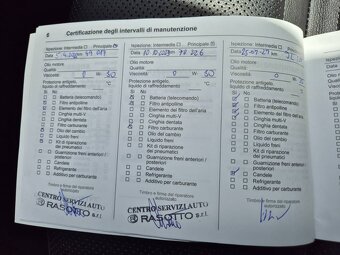 6 Certificazione degli intervalli di manutenzione
Ispezione: Intermedia Principale
Data
Olio motore
Qualità
Viscosità 0 W 30
Protezione antigelo,
liquido di raffreddamento
Sì No
Batteria (telecomando)
Filtro antipolline
Elemento del filtro dell'aria
Cinghia multi-V
Cinghia dentata
Filtro carburante
Olio del cambio
Liquido freni
Kit di riparazione
dei pneumatici
Guarnizione freni anteriori /
posteriori
Candele
Refrigerante
Additivo per carburante
Timbro e firma del riparatore
autorizzato
CENTRO SERVIZI AUTO
RASOTTO s.r.l.
Ispezione: Intermedia Principale
Data
Olio motore
Qualità
Viscosità 0 W 30
Protezione antigelo,
liquido di raffreddamento
Sì No
Batteria (telecomando)
Filtro antipolline
Elemento del filtro dell'aria
Cinghia multi-V
Cinghia dentata
Filtro carburante
Olio del cambio
Liquido freni
Kit di riparazione
dei pneumatici
Guarnizione freni anteriori /
posteriori
Candele
Refrigerante
Additivo per carburante
Timbro e firma del riparatore
autorizzato
CENTRO SERVIZI AUTO
RASOTTO s.r.l.
Ispezione: Intermedia
Data
Olio motore
Qualità
Viscosità
Protezione antigelo,
liquido di raffreddamento
Sì No
Batteria (telecomando)
Filtro antipolline
Elemento del filtro dell'aria
Cinghia multi-V
Cinghia dentata
Filtro carburante
Olio del cambio
Liquido freni
Kit di riparazione
dei pneumatici
Guarnizione freni anteriori /
posteriori
Candele
Refrigerante
Additivo per carburante
Timbro e firma del riparatore
autorizzato